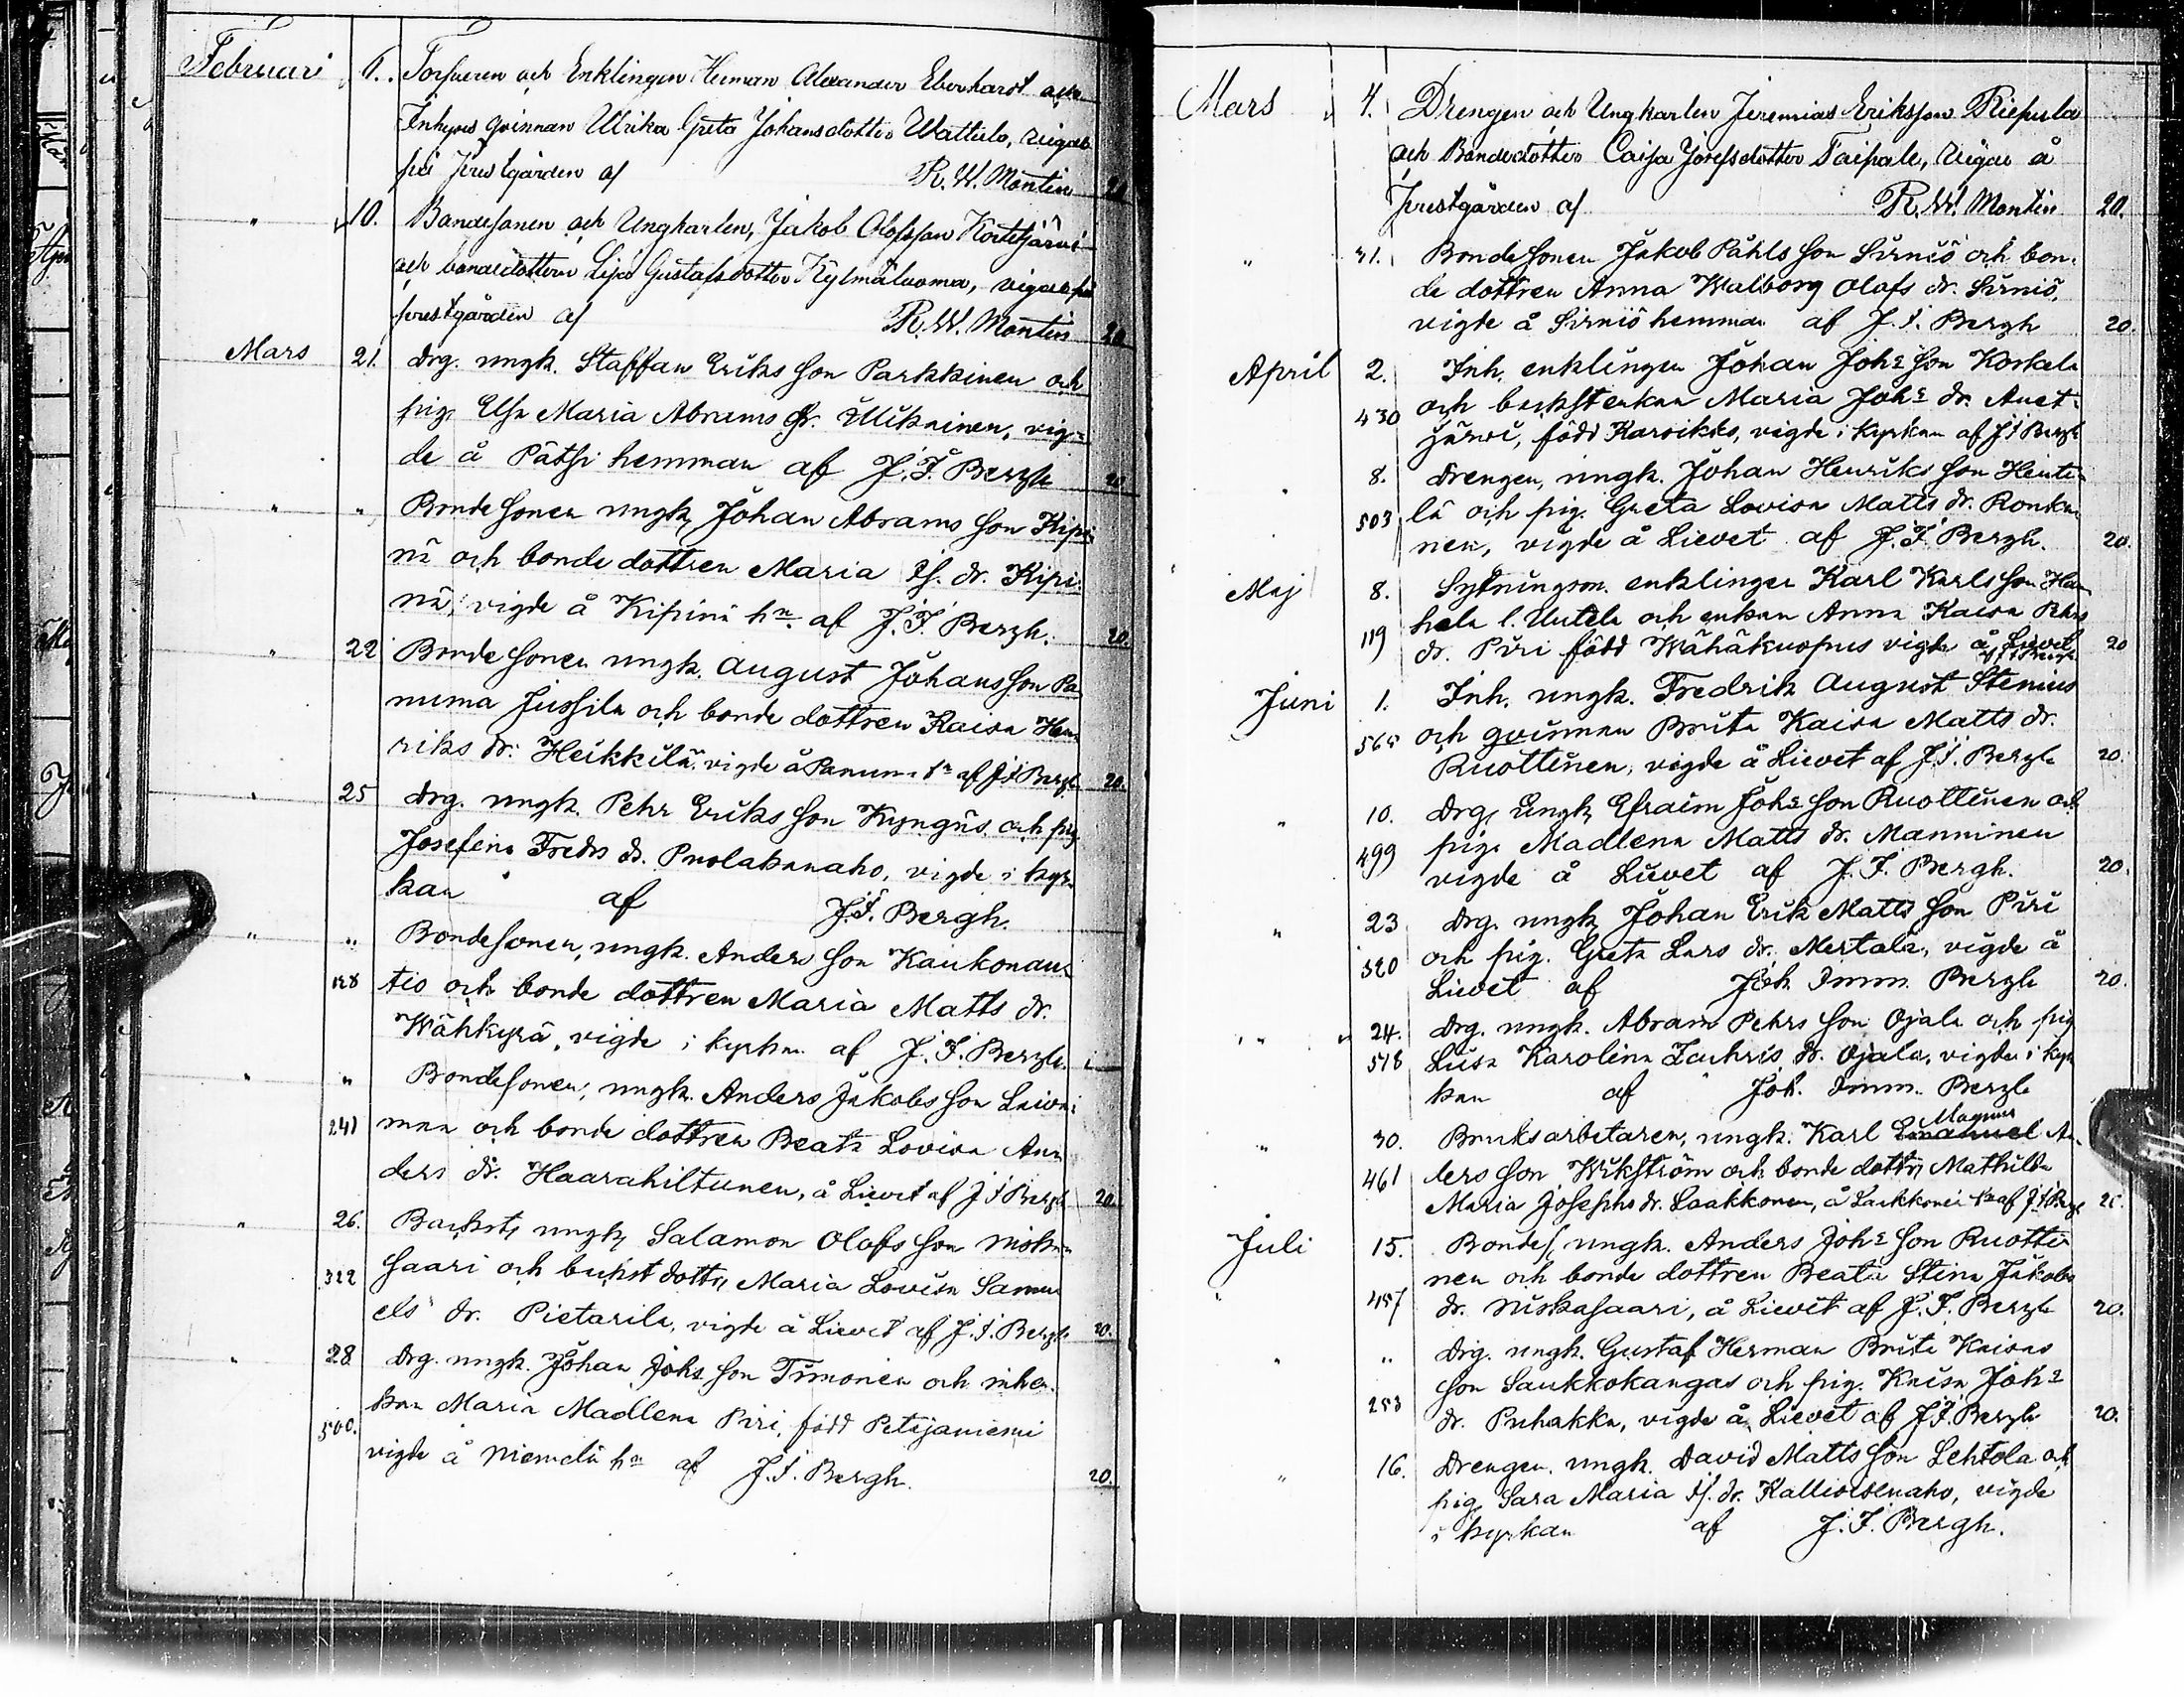 Februari 6. Torparen och Enklingen Herman Alexander Eberhardt och
Inhyses qvinnan Ulrika Greta Johansdotter Wattulo, vigde
på Prestgården af R. W. Montin 20
" 10. Bondesonen och Ungkarlen, Jakob Olofsson Kortetjärvi
och bondedottern Lisa Gustafsdotter Kylmäluoma, vigde på
prestgården af R. W. Montin 20
Mars 21. Drg. ungk. Staffan Eriks son Parkkinen och
pig. Elsa Maria Abrams dr. Ulikainen, vig-
de å Pätsi hemman af J. I. Bergh 20
" " Bondesonen ungk. Johan Abrams son Kipi-
nä och bonde dottren Maria Is. dr. Kipi-
nä, vigde å Kipinä hn. af J. I. Bergh. 20.
" 22 Bondesonen ungk. August Johansson Pa
numa Jussila och bonde dottren Kaisa Hen
riks dr. Heikkilä vigde å Panuma hn af J I Bergh 20.
" 25 Drg. ungk. Pehr Eriks son Kyngäs och pig.
Josefina Freds dr. Puolakanaho, vigde i kyr-
kan af J. I. Bergh.
" " Bondesonen, ungk. Anders son Kaukonau-
tio och bonde dottren Maria Matts dr.
Wähkyrä, vigde i kyrkan af J. I. Bergh.
" " Bondesonen, ungk. Anders Jakobs son
241 man och bonde dottren Beata Lovisa An-
ders dr. Haarahiltunen, å Lievet af J I Bergh 20.
" 26. Backst, ungk, Salamon Olofs son Niska-
322 saari och backst dottr, Maria Lovisa Samu
els dr. Pietarila, vigde å Lievet af J. I. Bergh 20.
" 28 Drg. ungk. Johan Johs son Timonen och inh. en-
kan Maria Madlena Piri, född Petäjäniemi
500. vigde å Niemelä hn af J. I. Bergh. 20.
Mars 4. Drengen och Ungkarlen Jeremias Eriksson Riepula
och Bondedotter Caisa Josefsdotter Taipale, vigde å
Prestgården af R. W. Montin 20.
" 31. Bondesonen Jakob Påhls son Sirniö och bon-
de dottren Anna Walborg Olofs dr. Sirniö,
vigde å Sirniö hemman af J. I. Bergh 20.
April 2. Inh. enklingen Johan Johs son Koskela
430 och backstenkan Maria Johs dr. Auet-
järvi, född Karsikko, vigde i kyrkan af J I Bergh
" 8. Drengen, ungk. Johan Henriks son Henti-
503 lä och pig. Greta Lovisa Matts dr. Ronkai-
nen, vigde å Lievet af J. I. Bergh. 20.
Maj 8. Sytningsm. enklingen Karl Karls son
hela l. Uutela och enkan Anna Kaisa Pehrs
119 dr. Piri född Wähäkuopus vigde å Lievet 20
af J I Bergh
Juni 1. Inh. ungk. Fredrik August Stenius
565 och qvinnan Brita Kaisa Matts dr.
Ruottinen, vigde å Lievet af J. I. Bergh 20.
" 10. Drg, Ungk, Efraim Johs son Ruottinen och
499 pig. Madlena Matts dr. Manninen
vigde å Lievet af J. I. Bergh. 20.
" 23 Drg. ungk, Johan Erik Matts son Piri
320 och pig. Greta Lars dr. Mertala, vigde å
Lievet af Joh Imm. Bergh 20.
" " 24. Drg. ungk. Abram Pehrs son Ojala och pig
518 Lisa Karolina Zachris dr. Ojala, vigde i kyr
kan af Joh. Imm. Bergh
Magnus
" 30. Bruksarbetaren, ungk. Karl Emanuel An-
461 ders son Wikström och bonde dottr, Mathilda
Maria Josephs dr. Laakkonen, å Laakkonen hn af J I Bergh 20.
Juli 15. Bondes, ungk. Anders Johs son Ruotti-
nen och bonde dottren Beata Stina Jakobs
457 dr. Niskasaari, å Lievet af J. I. Bergh 20.
" " Drg. ungk. Gustaf Herman Brita Kaisas
son Saukkokangas och pig. Kaisa Johs
253 dr. Puhakka, vigde å Lievet af J. I. Bergh 20.
" 16. Drengen. ungk. David Matts son Lehtola och
pig. Sara Maria Is. dr. Kallioisenaho, vigde
i kyrkan af J. I. Bergh.